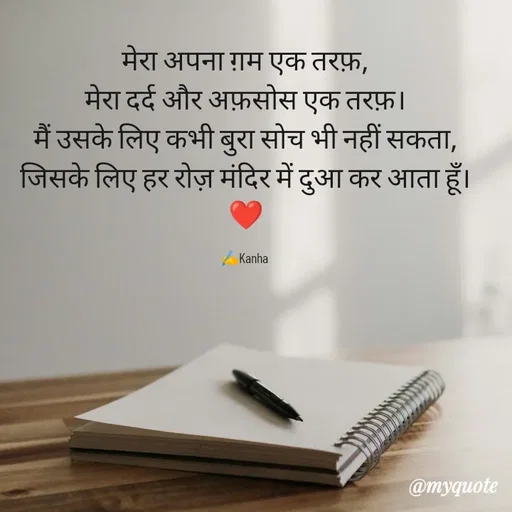 मेरा अपना ग़म एक तरफ़,
मेरा दर्द और अफ़सोस एक तरफ़।
मैं उसके लिए कभी बुरा सोच भी नहीं सकता,
जिसके लिए हर रोज़ मंदिर में दुआ कर आता हूँ।
❤️
✍️Kanha
@myquote